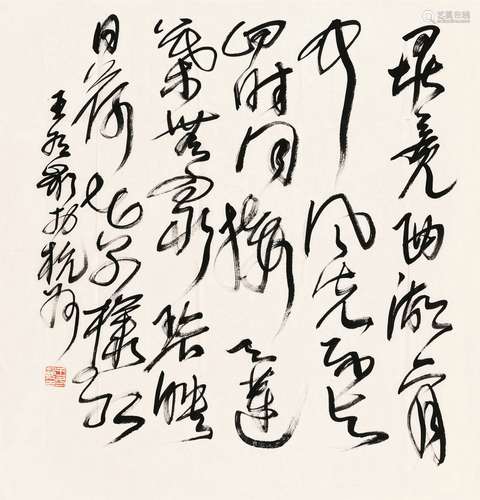 毕竟西湖六月
中风光不与
四时同接天莲
叶无穷碧映
日荷花别样红
王冬龄于杭州
艺狐在线